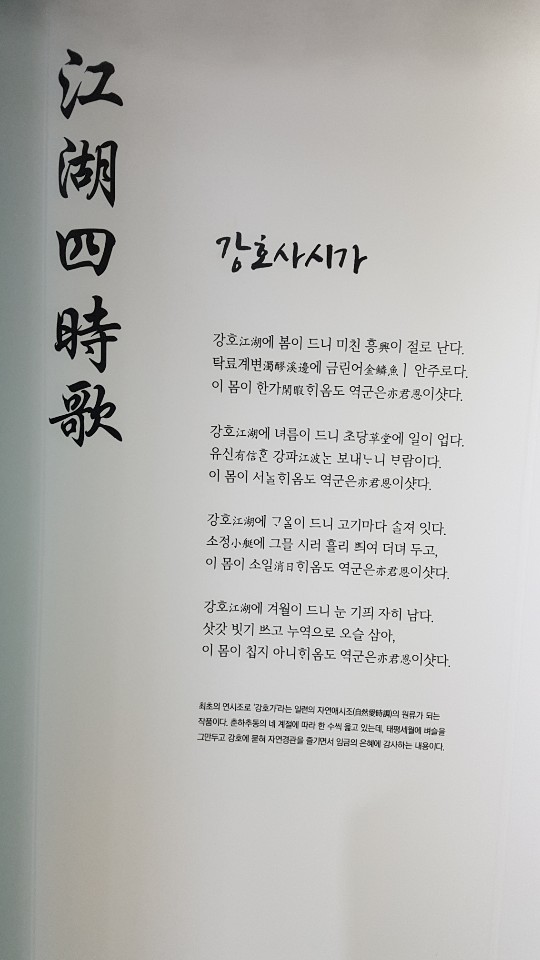 江湖四時歌
강호사시가
강호江湖에 봄이 드니 미친 흥興이 절로 난다.
탁료계변濁醪溪邊에 금린어金鱗魚ㅣ 안주로다.
이 몸이 한가閑暇ᄒᆡ옴도 역군은亦君恩이샷다.
강호江湖에 녀름이 드니 초당草堂에 일이 업다.
유신有信ᄒᆞᆫ 강파江波ᄂᆞᆫ 보내ᄂᆞ니 ᄇᆞ람이다.
이 몸이 서ᄂᆞᆯᄒᆡ옴도 역군은亦君恩이샷다.
강호江湖에 ᄀᆞ올이 드니 고기마다 ᄉᆞᆯ져 잇다.
소정小艇에 그믈 시러 흘리 ᄯᅴ여 더뎌 두고,
이 몸이 소일消日ᄒᆡ옴도 역군은亦君恩이샷다.
강호江湖에 겨월이 드니 눈 기픠 자히 남다.
삿갓 빗기 ᄡᅳ고 누역으로 오슬 삼아,
이 몸이 칩지 아니ᄒᆡ옴도 역군은亦君恩이샷다.
최초의 연시조로 '강호가'라는 일련의 자연애시조(自然愛時調)의 원류가 되는
작품이다. 춘하추동의 네 계절에 따라 한 수씩 읊고 있는데, 태평세월에 벼슬을
그만두고 강호에 묻혀 자연경관을 즐기면서 임금의 은혜에 감사하는 내용이다.